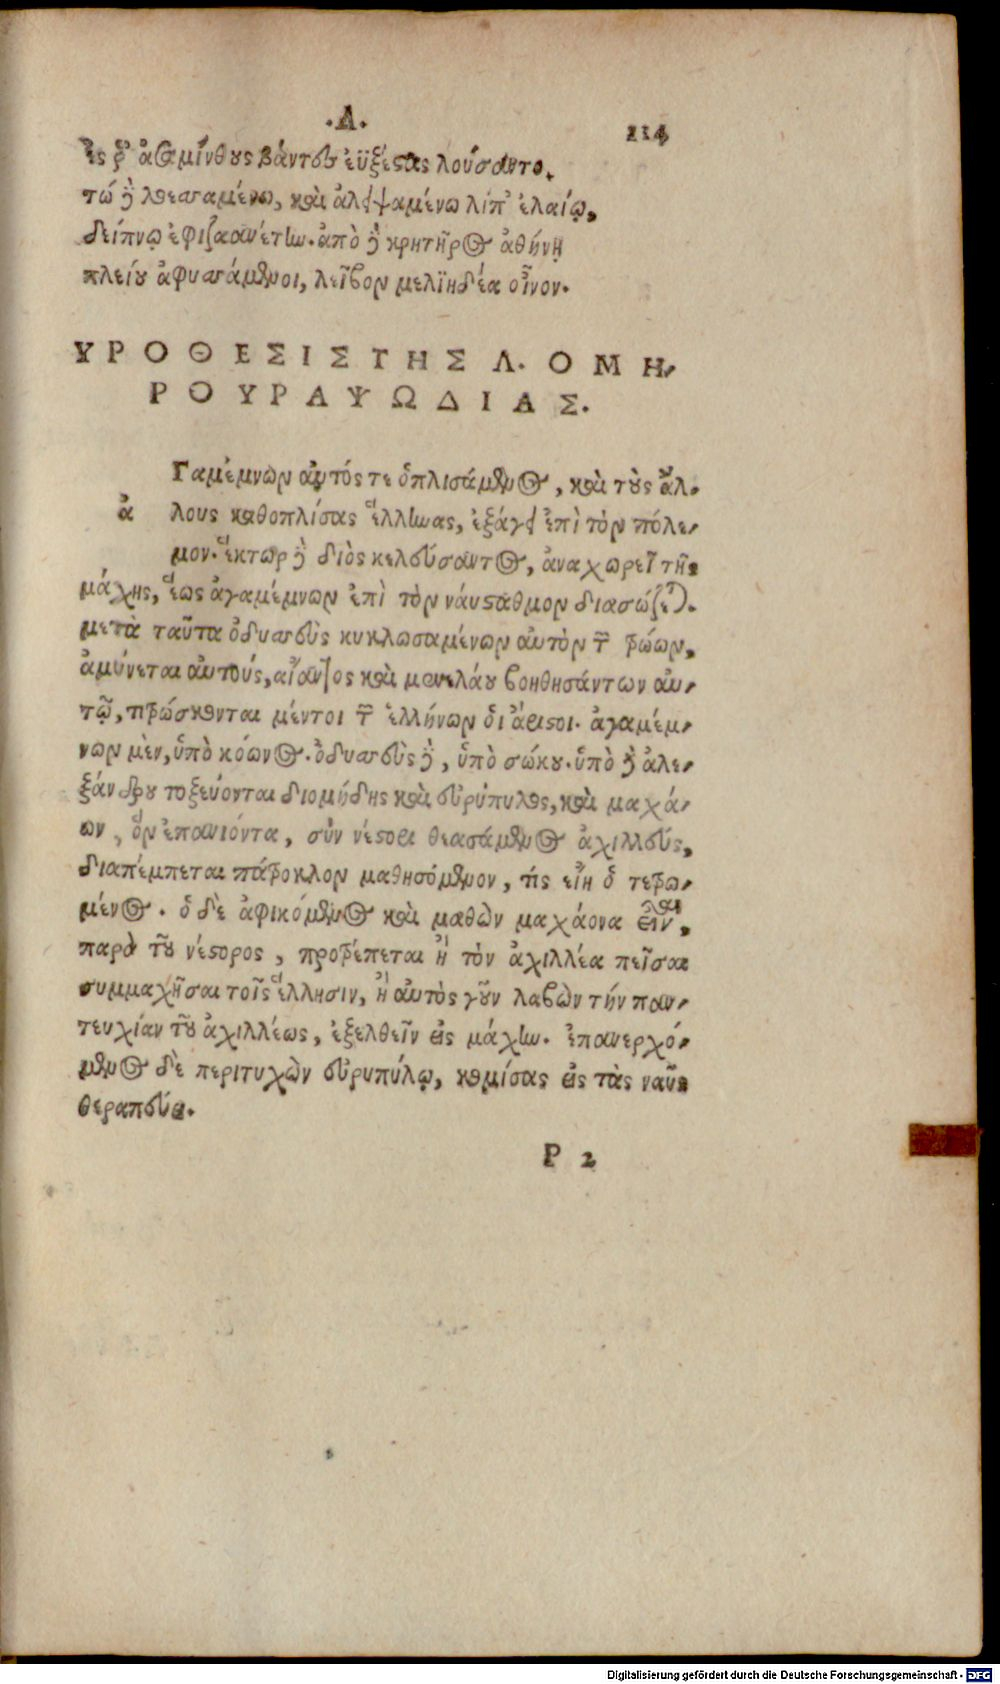 .Λ. 114
ἔς ῥ' ἀσαμίνθους βάντες ἐϋξέστας λούσαντο.
τώ δὲ λοεσσαμένω, καὶ ἀλειψαμένω λίπ' ἐλαίῳ,
δείπνῳ ἐφιζανέτην. ἀπὸ δὲ κρητῆρος ἀθήνῃ
πλείου ἀφυσσάμενοι, λεῖβον μελϊηδέα οἶνον.
ΥΡΟΘΕΣΙΣ ΤΗΣ Λ. ΟΜΗ,
ΡΟΥ ΡΑΨΩΔΙΑΣ.
Γαμέμνων αὐτός τε ὁπλισάμενος, καὶ τοὺς ἄλ-
ἀ λους καθοπλίσας ἕλληνας, ἐξάγει ἐπὶ τὸν πόλε-
μον. ἕκτωρ δὲ διὸς κελεύσαντος, ἀναχωρεῖ τῆς
μάχης, ἕως ἀγαμέμνων ἐπὶ τὸν ναύσταθμον διασώζεται.
μετὰ ταῦτα ὀδυσσεὺς κυκλωσαμένων αὐτὸν τῶν τρώων,
ἀμύνεται αὐτούς, αἴαντος καὶ μενελάου βοηθησάντων αὐ-
τῷ, τιτρώσκονται μέντοι τῶν ἑλλήνων οἱ ἄριστοι. ἀγαμέμ-
νων μὲν, ὑπὸ κόωνος. ὀδυσσεὺς δὲ, ὑπὸ σώκου. ὑπὸ δὲ ἀλε-
ξάνδρου τοξεύονται διομήδης καὶ εὐρύπυλος, καὶ μαχά-
ων, ὃν ἐπανιόντα, σὺν νέστορι θεασάμενος ἀχιλλεύς,
διαπέμπεται πάτροκλον μαθησόμενον, τίς εἴη ὁ τετρω-
μένος. ὁ δὲ ἀφικόμενος καὶ μαθὼν μαχάονα εἶναι,
παρὰ τοῦ νέστορος, προτρέπεται ἢ τὸν ἀχιλλέα πεῖσαι
συμμαχῆσαι τοῖς ἕλλησιν, ἢ αὐτὸς γοῦν λαβὼν τήν παν-
τευχίαν τοῦ ἀχιλλέως, ἐξελθεῖν εἰς μάχην. ἐπανερχό-
μενος δὲ περιτυχὼν εὐρυπύλῳ, κομίσας εἰς τὰς ναῦς
θεραπεύει.
P 2
Digitalisierung gefördert durch die Deutsche Forschungsgemeinschaft - DFG